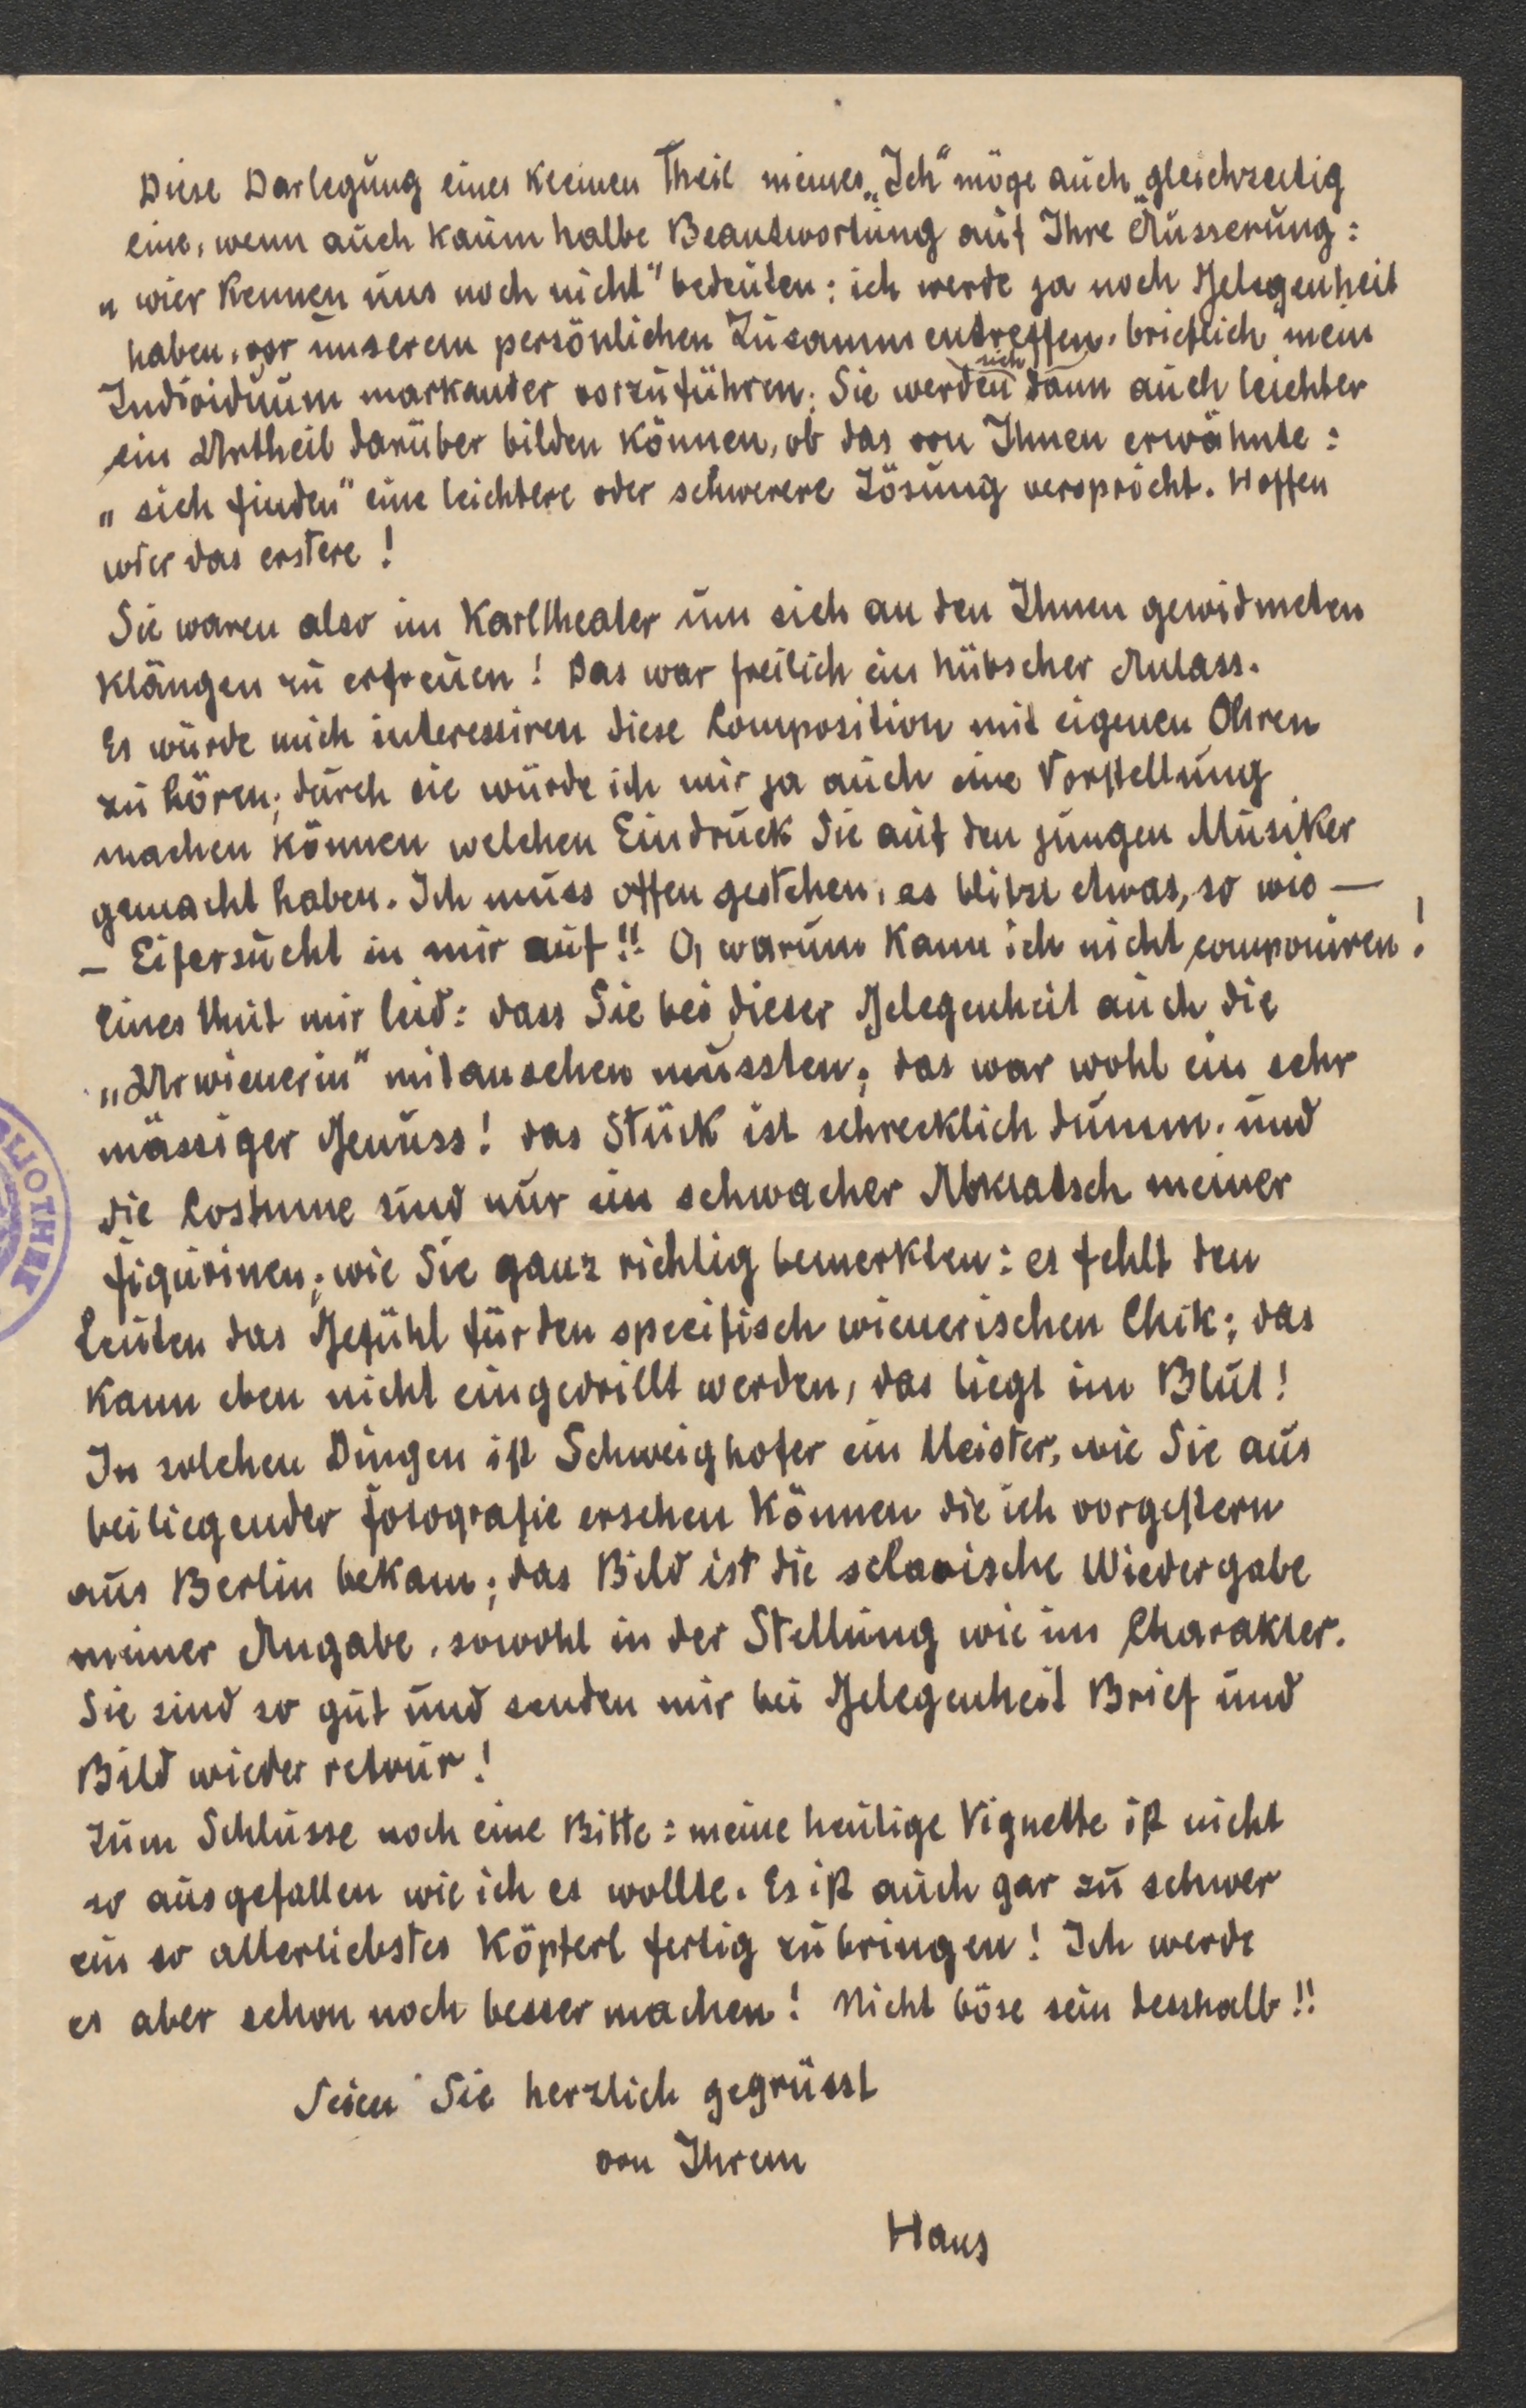 Diese Darlegung eines kleinen Theil meines „Ich" möge auch gleichzeitig
eine, wenn auch kaum halbe Beantwortung auf Ihre Äusserung:
„wier kennen uns noch nicht" bedeuten: ich werde ja noch Gelegenheit
haben, vor unserem persönlichen Zusammentreffen, brieflich mein
Individuum markanter vorzuführen. Sie werden sich dann auch leichter
ein Urtheil darüber bilden können, ob das von Ihnen erwähnte:
„sich finden" eine leichtere oder schwerere Lösung verspricht. Hoffen
wier das erstere!
Sie waren also im Karltheater um sich an den Ihnen gewidmeten
Klängen zu erfreuen! Das war freilich ein hübscher Anlass.
Es würde mich interessiren diese Composition mit eigenen Ohren
zu hören; durch sie würde ich mir ja auch eine Vorstellung
machen können welchen Eindruck Sie auf den jungen Musiker
gemacht haben. Ich muss offen gestehen, es blitzt etwas, so wie —
— Eifersucht in mir auf!! O, warum kann ich nicht componiren!
Eines thut mir leid: dass Sie bei dieser Gelegenheit auch die
„Urwienerin" mitansehen mussten; das war wohl ein sehr
mässiger Genuss! das Stück ist schrecklich dumm, und
die Costume sind nur ein schwacher Abklatsch meiner
Figurinen; wie Sie ganz richtig bemerkten: es fehlt den
Leuten das Gefühl für den specifisch wienerischen Chik; das
kann eben nicht eingedrillt werden, das liegt im Blut!
In solchen Dingen ist Schweighofer ein Meister, wie Sie aus
beiliegender Fotografie ersehen können die ich vorgestern
aus Berlin bekam; das Bild ist die sclavische Wiedergabe
meiner Angabe, sowohl in der Stellung wie im Charakter.
Sie sind so gut und senden mir bei Gelegenheit Brief und
Bild wieder retour!
Zum Schlusse noch eine Bitte: meine heutige Vignette ist nicht
so ausgefallen wie ich es wollte. Es ist auch gar zu schwer
ein so allerliebstes Köpferl fertig zu bringen! Ich werde
es aber schon noch besser machen! Nicht böse sein desshalb!!
Seien Sie herzlich gegrüsst
von Ihrem
Hans